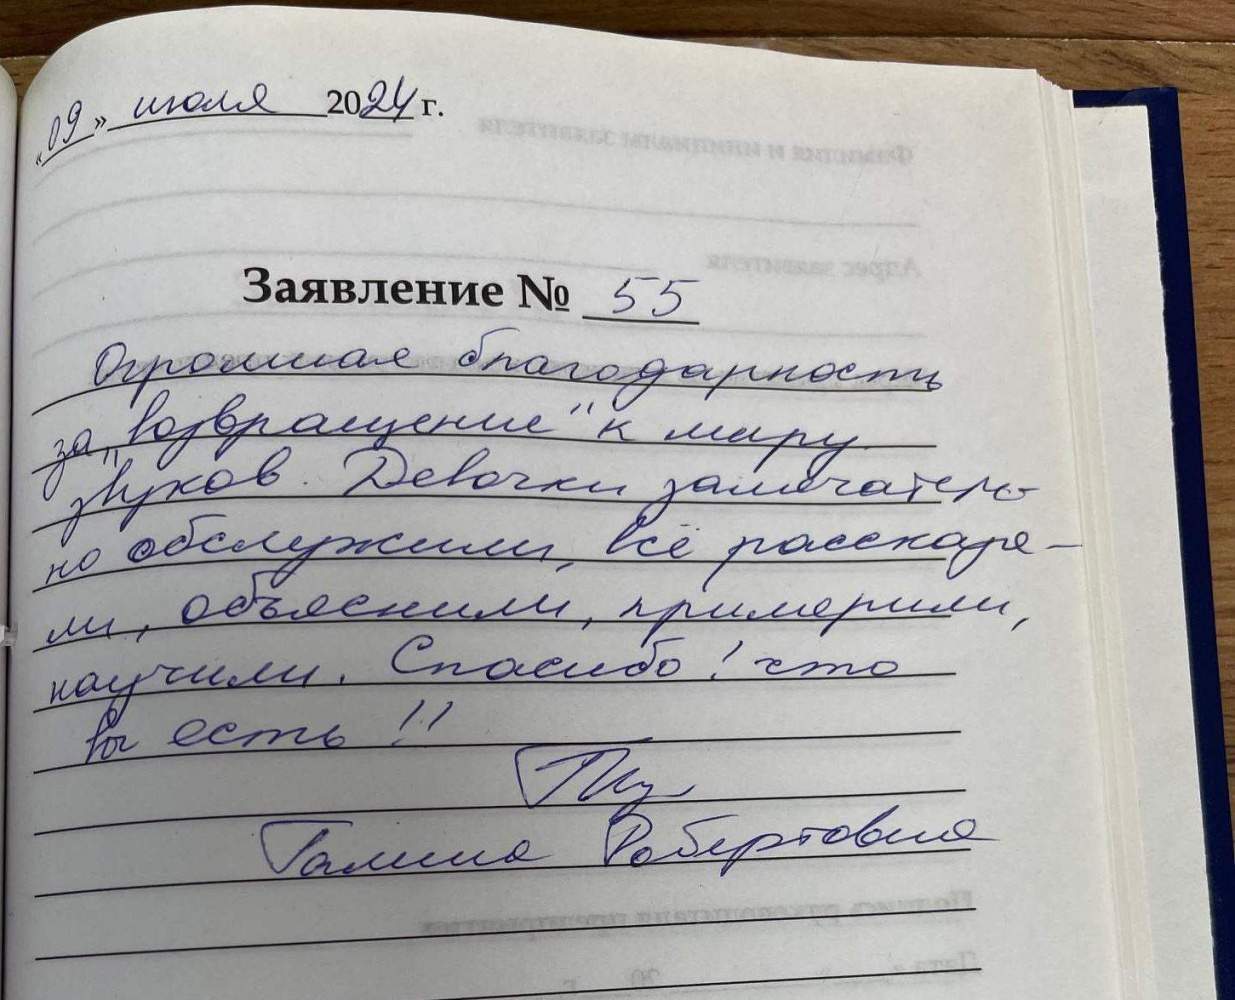 «09» июля 2024 г.
Заявление № 55
Огромная благодарность
за „возвращение“ к миру
звуков. Девочки замечатель-
но обслужили, всё рассказа-
ли, объяснили, примерили,
научили. Спасибо! что
вы есть!!
Галина Робертовна